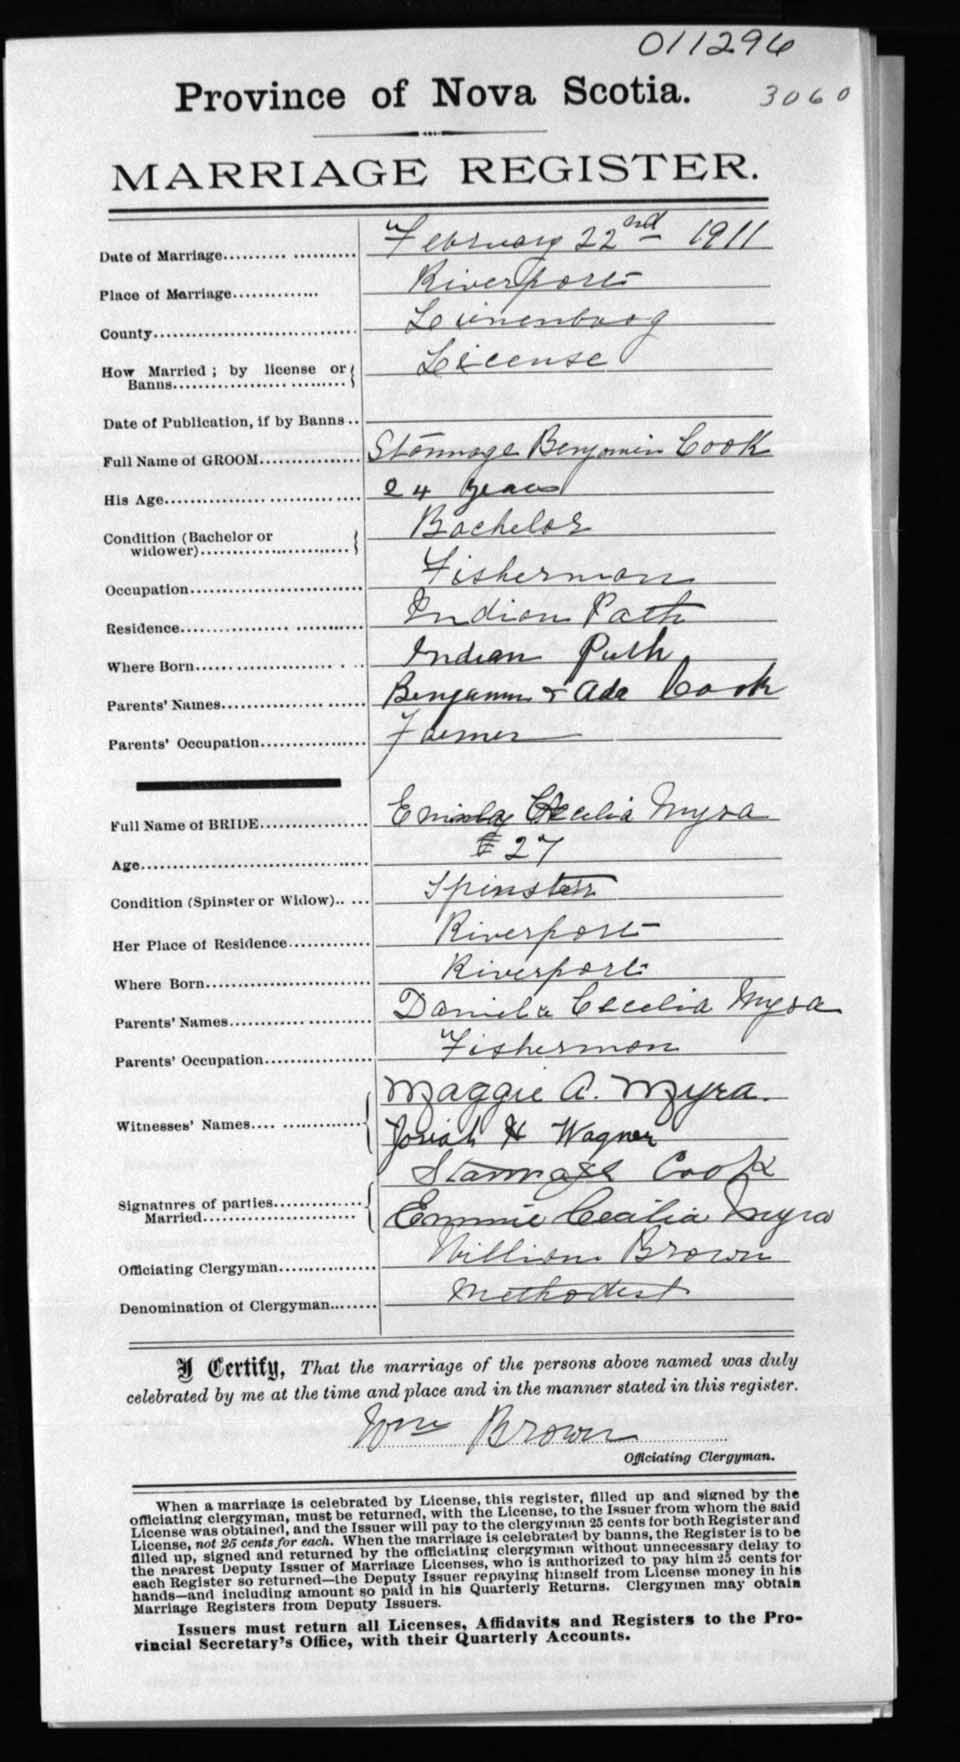 011296
Province of Nova Scotia.
3060
MARRIAGE REGISTER.
Date of Marriage.................... February 22nd 1911
Place of Marriage.............. Riverport
County.............................. Lunenburg
How Married ; by license or
Banns.......................... License
Date of Publication, if by Banns..
Full Name of GROOM................ Stannage Benjamin Cook
His Age.............................. 24 years
Condition (Bachelor or
widower)....................... Bachelor
Occupation.......................... Fisherman
Residence........................... Indian Path
Where Born...................... Indian Path
Parents' Names...................... Benjamin & Ada Cook
Parents' Occupation................ Farmer
Full Name of BRIDE................ Cecilia Myra
Age.................................. 27
Condition (Spinster or Widow)..... Spinster
Her Place of Residence............. Riverport
Where Born......................... Riverport
Parents' Names..................... Daniel & Cecelia Myra
Parents' Occupation................ Fisherman
Maggie A. Myra.
Witnesses' Names.................. Josiah H Wagner
Stannage Cook
Signatures of parties..............
Married....................... Emmie Cecilia Myra
Officiating Clergyman............... William Brown
Denomination of Clergyman....... Methodist
I Certify, That the marriage of the persons above named was duly
celebrated by me at the time and place and in the manner stated in this register.
Wm Brown
Officiating Clergyman.
When a marriage is celebrated by License, this register, filled up and signed by the
officiating clergyman, must be returned, with the License, to the Issuer from whom the said
License was obtained, and the Issuer will pay to the clergyman 25 cents for both Register and
License, not 25 cents for each. When the marriage is celebrated by banns, the Register is to be
filled up, signed and returned by the officiating clergyman without unnecessary delay to
the nearest Deputy Issuer of Marriage Licenses, who is authorized to pay him 25 cents for
each Register so returned—the Deputy Issuer repaying himself from License money in his
hands—and including amount so paid in his Quarterly Returns. Clergymen may obtain
Marriage Registers from Deputy Issuers.
Issuers must return all Licenses, Affidavits and Registers to the Pro-
vincial Secretary's Office, with their Quarterly Accounts.